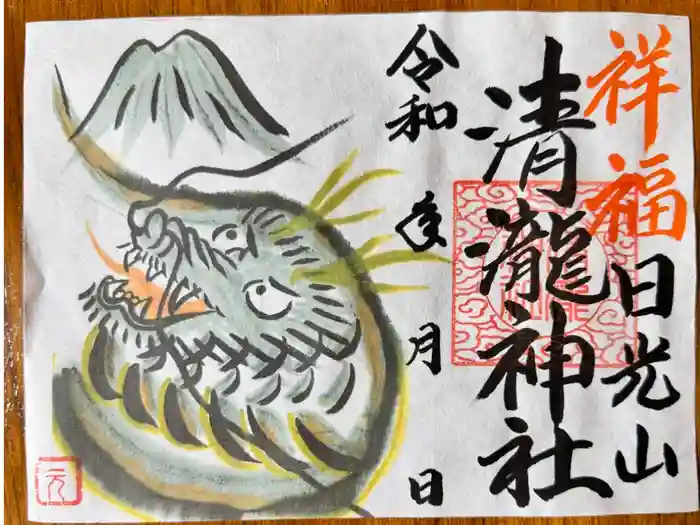 祥福
日光山
清瀧神社
令和 年 月 日
元